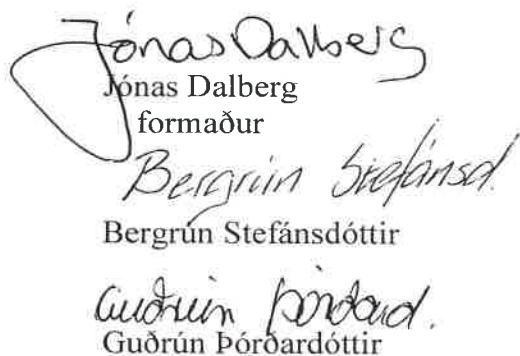 Jónas Dalberg
Jónas Dalberg
formaður
Bergrún Stefánsd.
Bergrún Stefánsdóttir
Guðrún Þórðard.
Guðrún Þórðardóttir